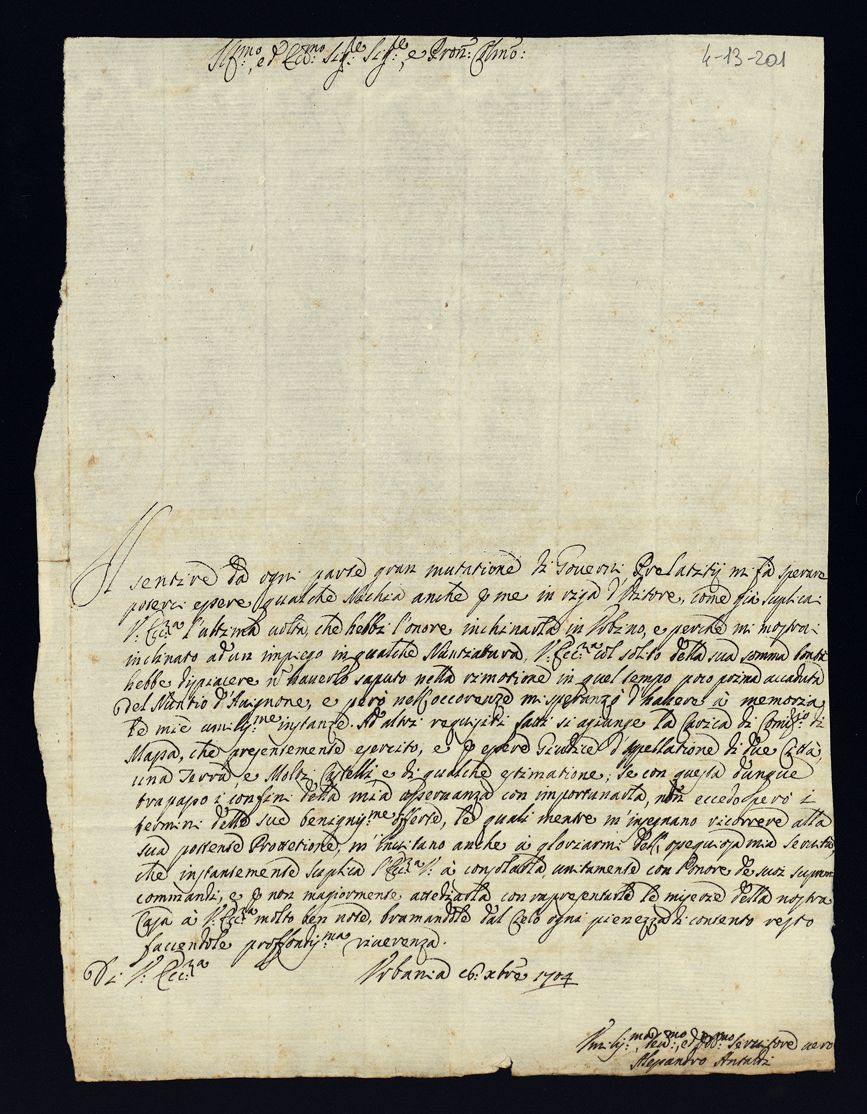 Ill:mo, ed Ecc:mo Sig:re Sig:re, e Pron: Colmo:
4-13-201
Il sentire da ogni parte gran mutatione di Governi Prelatizij mi fà sperare
poterci essere qualche Nichia anche p me in riga d'Uditore, come già suplicai
V: Ecc:za l'ultima volta, che hebbi l'onore inchinarla in Urbino, e perche mi mostrai
inclinato ad un impiego in qualche Nuntiatura, V: Ecc:za col solito della sua somma bontà
hebbe dispiacere n haverlo saputo nella rimotione in quel tempo poco prima accaduta
del Nontio d'Avignone, e però nell'occorenze mi speranzò d'havere à memoria
le mie umilis:me instanze. Ad altri requisiti si agiunge la Carica di Comis:rio di
Massa, che presentemente esercito, e p essere Giudice d'appellatione di due Città,
una Terra e Molti Castelli e di qualche estimatione; Se con questa dunque
trapasso i confini della mia osservanza con importunarla, non eccedo però i
termini delle sue benignis:me offerte, le quali mentre m'insegnano ricorrere alla
sua possente Prottetione, m'invitano anche à gloriarmi dell'ossequiosa mia servitù,
che instantemente suplica l'Ecc:za V: à consolarla unitamente con l'onore de suoi supremi
commandi, e p non magiormente attediarla con rapresentarle le miserie della nostra
Casa à V: Ecc:za molto ben note, bramandole dal Cielo ogni pienezza di contento resto
facendole proffondis:ma riverenza.
Di V: Ecc:za Urbania 6: xbre 1704
Umilis:mo dev:mo, ed obb:mo Servitore vero
Alessandro Antaldi